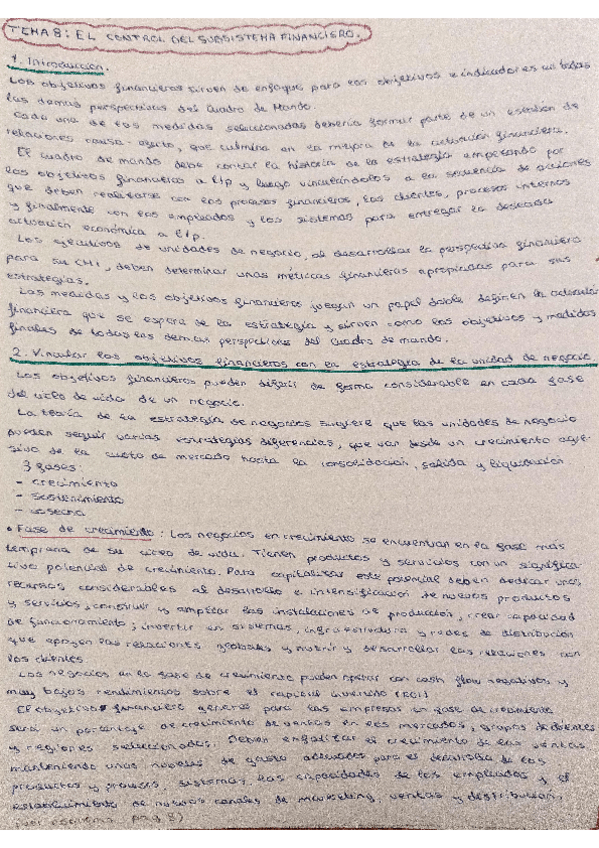 TEMA 8: EL CONTROL DEL SUBSISTEMA FINANCIERO.
1. Introducción.
Los objetivos financieros sirven de enfoque para los objetivos e indicadores en todas
las demás perspectivas del Cuadro de Mando.
Cada una de las medidas seleccionadas debería formar parte de un eslabón de
relaciones causa-efecto, que culmina en la mejora de la actuación financiera.
El cuadro de mando debe contar la historia de la estrategia empezando por
los objetivos financieros a l/p y luego vinculándolos a la secuencia de acciones
que deben realizarse con los procesos financieros, los clientes, procesos internos
y finalmente con los empleados y los sistemas para entregar la deseada
actuación económica a l/p.
Los ejecutivos de unidades de negocio, al desarrollar la perspectiva financiera
para su CMI, deben determinar unas métricas financieras apropiadas para sus
estrategias.
Las medidas y los objetivos financieros juegan un papel doble: definen la actuación
financiera que se espera de la estrategia y sirven como los objetivos y medidas
finales de todas las demás perspectivas del cuadro de mando.
2. Vincular los objetivos financieros con la estrategia de la unidad de negocio.
Los objetivos financieros pueden diferir de forma considerable en cada fase
del ciclo de vida de un negocio.
La teoría de la estrategia de negocios sugiere que las unidades de negocio
pueden seguir varias estrategias diferencias, que van desde un crecimiento agre-
sivo de la cuota de mercado hasta la consolidación, salida y liquidación
3 fases:
- crecimiento
- sostenimiento
- cosecha
• Fase de crecimiento: Los negocios en crecimiento se encuentran en la fase más
temprana de su ciclo de vida. Tienen productos y servicios con un significa-
tivo potencial de crecimiento. Para capitalizar este potencial deben dedicar unos
recursos considerables al desarrollo e intensificación de nuevos productos
y servicios; construir y ampliar las instalaciones de producción; crear capacidad
de funcionamiento; invertir en sistemas, infraestructura y redes de distribución
que apoyen las relaciones globales y nutrir y desarrollar las relaciones con
los clientes
Los negocios en la fase de crecimiento pueden operar con cash flow negativos y
muy bajos rendimientos sobre el capital invertido (ROI)
El objetivo financiero general para las empresas en fase de crecimiento
será un porcentaje de crecimiento de ventas en los mercados, grupos de clientes
y regiones seleccionados. Deben enfatizar el crecimiento de las ventas,
manteniendo unos niveles de gasto adecuados para el desarrollo de los
productos y procesos, sistemas, las capacidades de los empleados y el
establecimiento de nuevos canales de marketing, ventas y distribución,
(ver esquema pag 8)